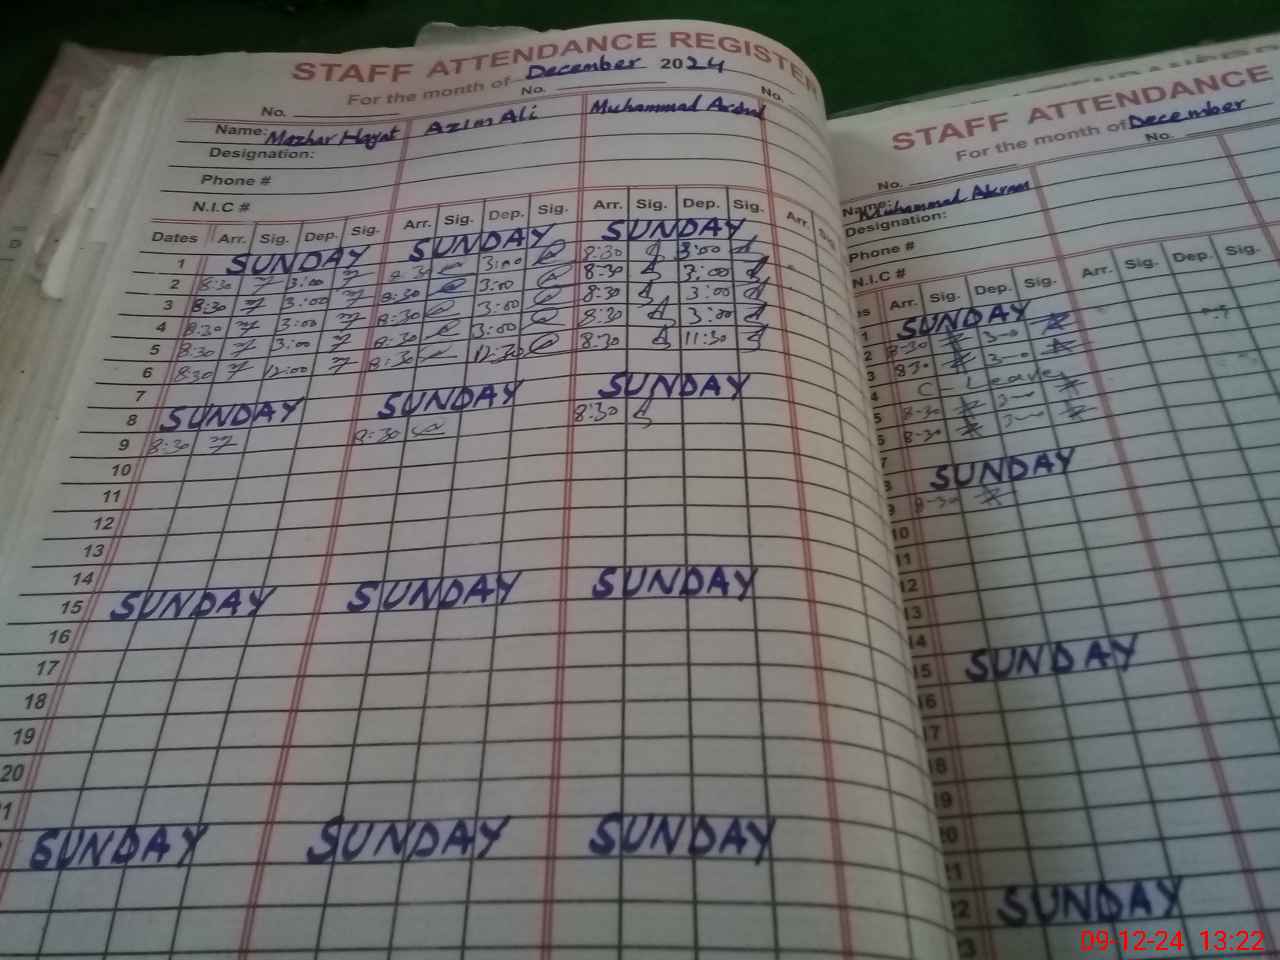 STAFF ATTENDANCE REGISTER
For the month of December 2024
No. No. No.
Name: Mazhar Hayat Azim Ali Muhammad Arshad
Designation:
Phone #
N.I.C #
Dates Arr. Sig. Dep. Sig. Arr. Sig. Dep. Sig. Arr. Sig. Dep. Sig. Arr.
1 SUNDAY SUNDAY SUNDAY
2 8:30 3:00 8:30 3:00 8:30 3:00
3 8:30 3:00 8:30 3:00 8:30 3:00
4 8:30 3:00 8:30 3:00 8:30 3:00
5 8:30 3:00 8:30 3:00 8:30 3:00
6 8:30 12:00 8:30 12:30 8:30 11:30
7
8 SUNDAY SUNDAY SUNDAY
9 8:30 8:30 8:30
10
11
12
13
14
15 SUNDAY SUNDAY SUNDAY
16
17
18
19
20
SUNDAY SUNDAY SUNDAY
STAFF ATTENDANCE
For the month of December
No. No.
Name: Muhammad Akram
Designation:
Phone #
N.I.C #
Arr. Sig. Dep. Sig. Arr. Sig. Dep. Sig.
1 SUNDAY
2 8-30 3-00
3 830 3-00
4 C - Leave
5 8-30 3-00
6 8-30 3-00
7
8 SUNDAY
9 8-30
10
11
12
13
14
15 SUNDAY
16
17
18
19
20
21
22 SUNDAY
09-12-24 13:22